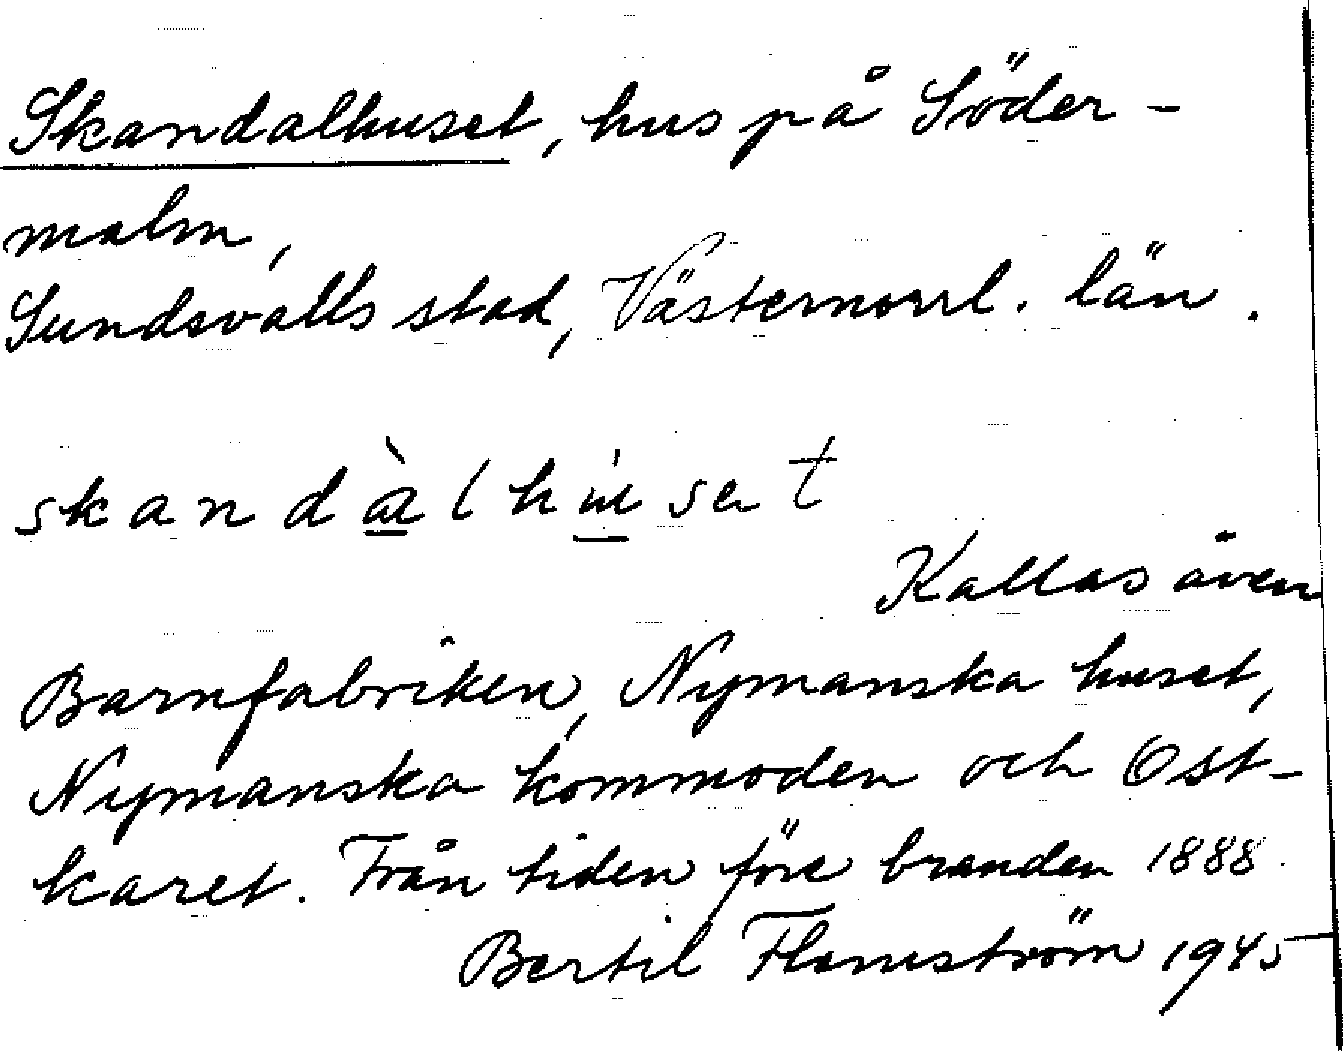 Skandalhuset, hus på Söder-
malm,
Sundsvalls stad, Västernorrl. län.
skandàlhu̍set
Kallas även
Barnfabriken, Nymanska huset,
Nymanska kommoden och Ost-
karet. Från tiden före branden 1888.
Bertil Flemström 1945